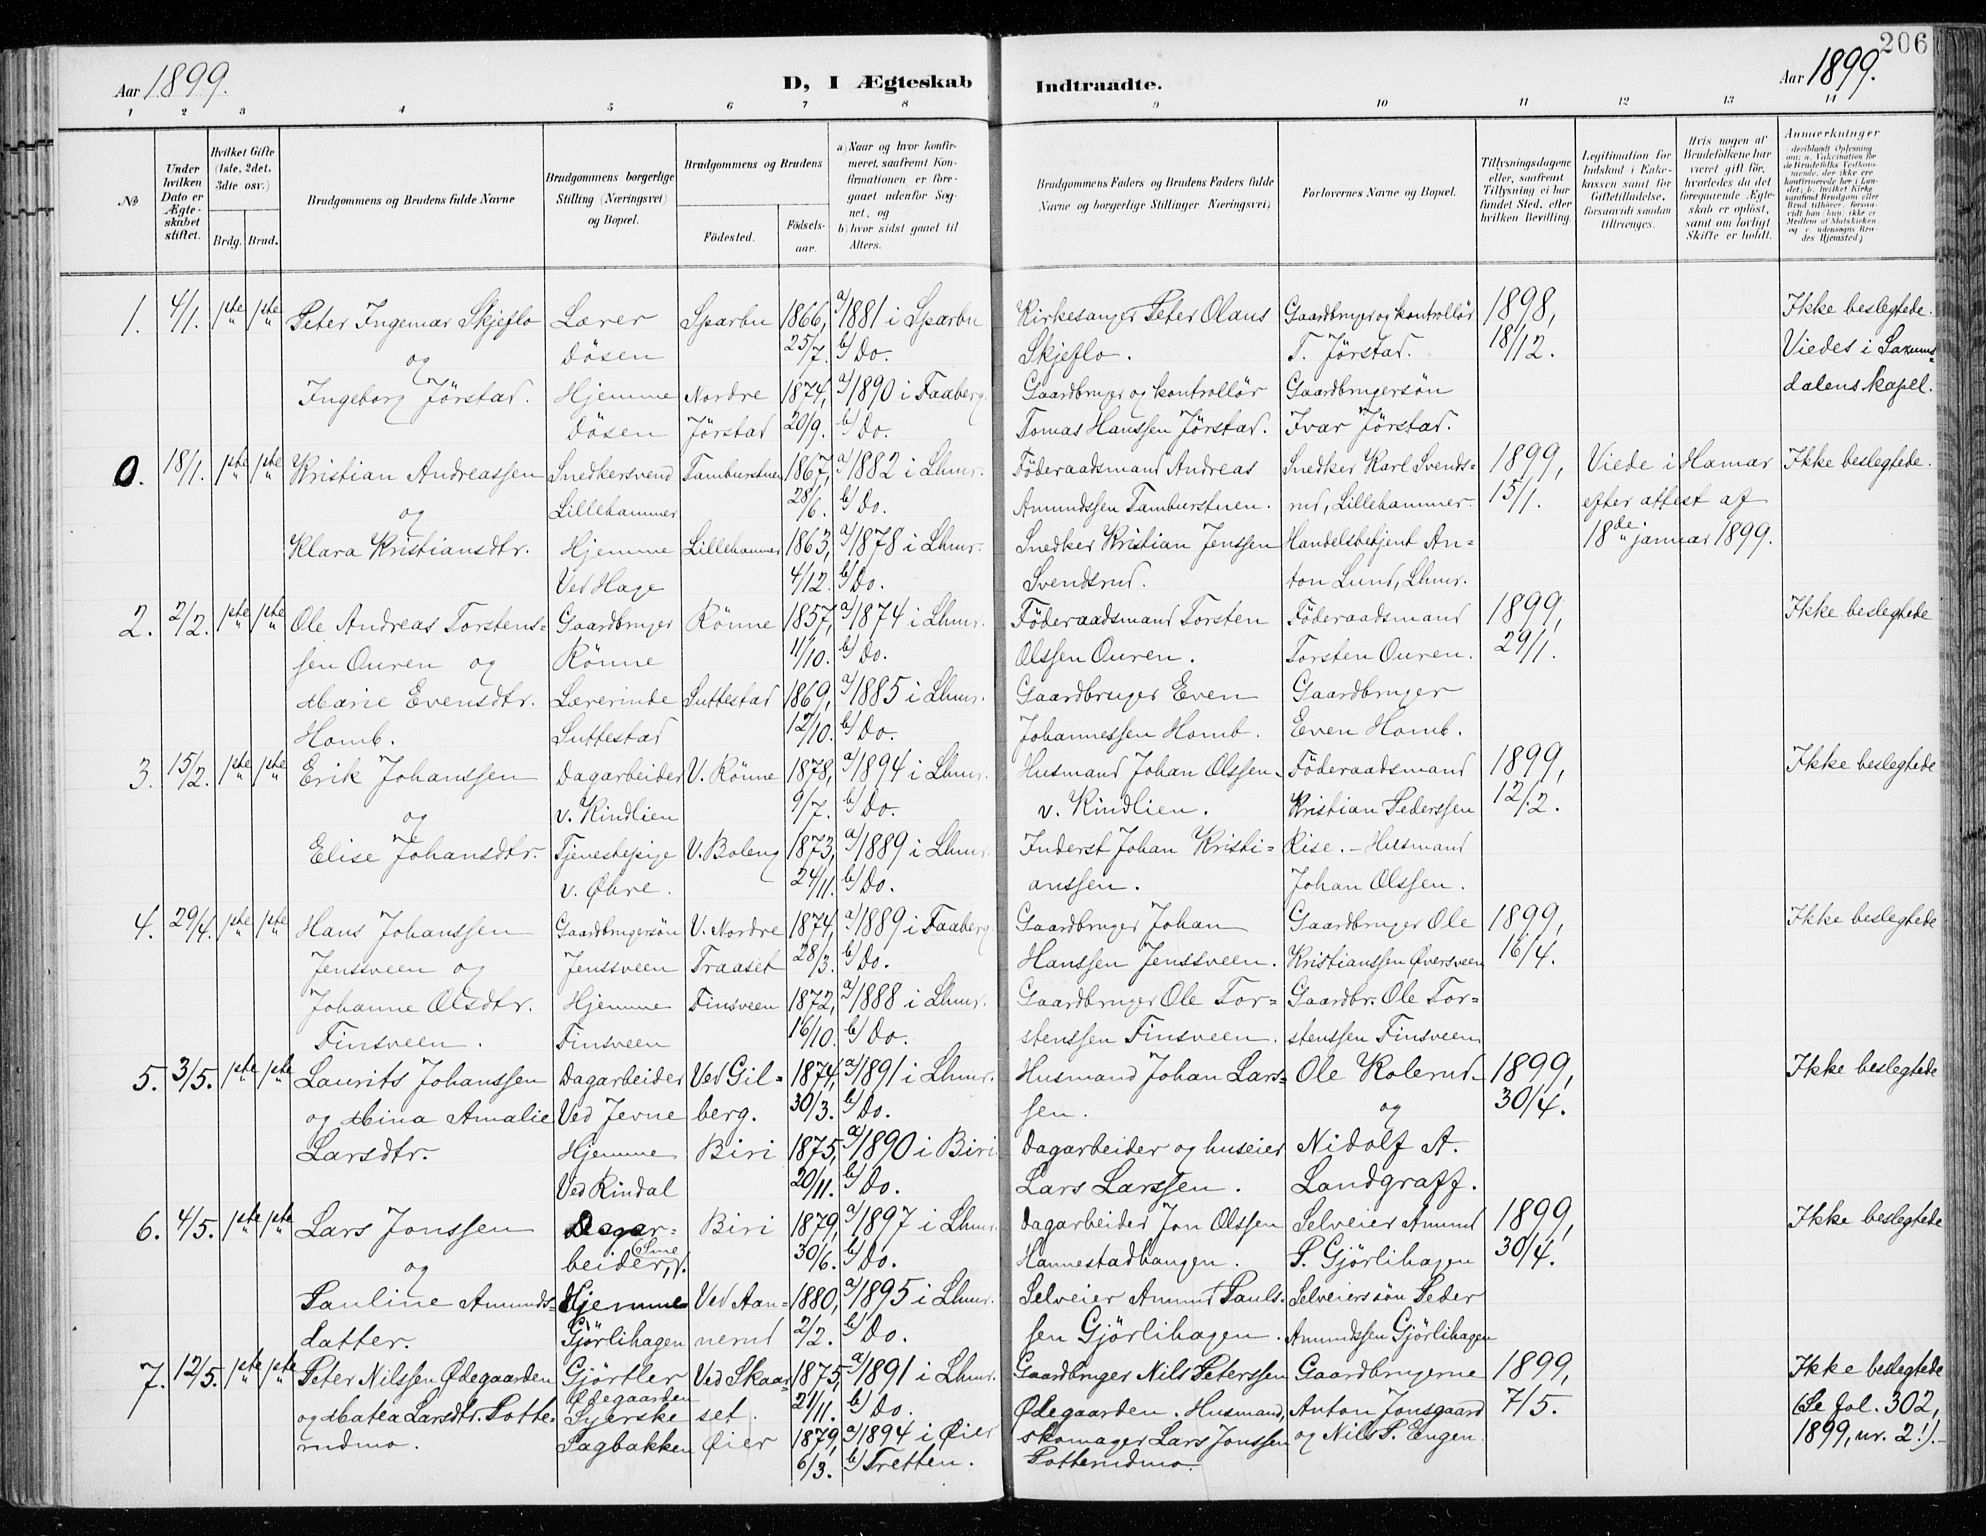 206
Aar 1899.
D, I Ægteskab Indtraadte.
Aar 1899.
1 2 3 4 5 6 7 8 9 10 11 12 13 14
No
Under hvilken Dato er Ægteskabet stiftet.
Hvilket Gifte (1ste, 2det, 3die osv.)
Brdg. Brud.
Brudgommens og Brudens fulde Navne
Brudgommens borgerlige Stilling (Næringsvei) og Bopæl.
Brudgommens og Brudens
Fødested. Fødselsaar.
a) Naar og hvor konfirmeret, saafremt Konfirmationen er foregaaet udenfor Sognet, og
b) hvor sidst gaaet til Alters.
Brudgommens Faders og Brudens Faders fulde Navne og borgerlige Stillinger (Næringsvei)
Forlovernes Navne og Bopæl.
Tillysningsdagene eller, saafremt Tillysning ei har fundet Sted, efter hvilken Bevilling.
Legitimation for Indskud i Enkekassen samt for Giftetilladelse, forsaavidt saadan tiltrænges.
Hvis nogen af Brudefolkene har været gift før, hvorledes da det foregaaende Ægteskab er opløst, samt om lovligt Skifte er holdt.
Anmærkninger
1. 4/1. 1ste 1ste Peter Ingemar Skjeflo Lærer Sparbu 1866, a/1881 i Sparbu Kirkesanger Peter Olaus Gaardbruger og kontrollör 1898, Ikke beslegtede.
og Dösen 25/7. b/ Do. Skjeflo. T. Jörstad. 18/12. Viedes i Saxums-
Ingeborg Jörstad. Hjemme Nordre 1874, a/1890 i Faaberg. Gaardbruger og kontrollör Gaardbrugersön dalens kapel.
Dösen Jörstad 20/9. b/ Do. Tomas Hanssen Jörstad. Ivar Jörstad.
0. 18/1. 1ste 1ste Kristian Andreassen Snedkersvend Tamburstuen 1867, a/1882 i Lhmr. Föderaadsmand Andreas Snedker Karl Svends- 1899, Viede i Hamar Ikke beslegtede.
og Lillehammer 28/6. b/ Do. Amundssen Tamburstuen. rud, Lillehammer. 15/1. efter attest af
Klara Kristiansdtr. Hjemme Lillehammer 1863, a/1878 i Lhmr. Snedker Kristian Jenssen Handelsbetjent An- 18de januar 1899.
Ved Hage 4/12. b/ Do. Svendsrud. ton Lund, Lhmr.
2. 2/2. 1ste 1ste Ole Andreas Torstens- Gaardbruger Rönne 1857, a/1874 i Lhmr. Föderaadsmand Torsten Föderaadsmand 1899, Ikke beslegtede
sen Ouren og Rönne 11/10. b/ Do. Olssen Ouren. Torsten Ouren. 29/1.
Marie Evensdtr. Lærerinde Suttestad 1869, a/1885 i Lhmr. Gaardbruger Even Gaardbruger
Homb. Suttestad 12/10. b/ Do. Johannessen Homb. Even Homb.
3. 15/2. 1ste 1ste Erik Johanssen Dagarbeider V. Rönne 1878, a/1894 i Lhmr. Husmand Johan Olssen Föderaadsmand 1899, Ikke beslegtede
og v. Rindlien 9/7. b/ Do. v. Rindlien. Kristian Pederssen 12/2.
Elise Johansdtr. Tjenestepige V. Boleng 1873, a/1889 i Lhmr. Inderst Johan Kristi- Rise. - Husmand
v. Øbre. 24/11. b/ Do. anssen. Johan Olssen.
4. 29/4. 1ste 1ste Hans Johanssen Gaardbrugersön V. Nordre 1874, a/1889 i Faaberg Gaardbruger Johan Gaardbruger Ole 1899, Ikke beslegtede
Jenssveen og Jenssveen Traaset 28/3. b/ Do. Hanssen Jenssveen. Kristianssen Øversveen 16/4.
Johanne Olsdtr. Hjemme Finsveen 1872, a/1888 i Lhmr. Gaardbruger Ole Tor- Gaardbr. Ole Tor-
Finsveen. Finsveen 16/10. b/ Do. stenssen Finsveen. stenssen Finsveen
5. 3/5. 1ste 1ste Laurits Johanssen Dagarbeider Ved Gil- 1874, a/1891 i Lhmr. Husmand Johan Lars- Ole Kolerud 1899, Ikke beslegtede
og Mina Amalie Ved Jevne berg. 30/3. b/ Do. sen. og 30/4.
Larsdtr. Hjemme Biri 1875, a/1890 i Biri Dagarbeider og huseier Nidolf A.
Ved Rindal 20/11. b/ Do. Lars Larssen. Landgraff.
6. 4/5. 1ste 1ste Lars Jonssen Dagar- Biri 1879, a/1897 i Lhmr. Dagarbeider Jon Olssen Selveier Amund 1899, Ikke beslegtede
og beider, 30/6. b/ Do. Hannestadhaugen. P. Gjörlihagen 30/4.
Pauline Amunds- Hjemme Ved Aan- 1880, a/1895 i Lhmr. Selveier Amund Pauls- Selveiersön Peder
datter. Gjörlihagen nerud 2/2. b/ Do. sen Gjörlihagen. Amundssen Gjörlihagen
7. 12/5. 1ste 1ste Peter Nilssen Ødegaarden Gjörtler Ved Skaar- 1875, a/1891 i Lhmr. Gaardbruger Nils Peterssen Gaardbrugerne 1899, Ikke beslegtede
Ødegaarden
og Matea Larsdtr. Potte- Syerske set. 21/11. b/ Do. Ødegaarden. Husmand, Anton Jonsgaard 7/5. (Se fol. 302,
rudmo. Sagbakken Øier 1879, a/1894 i Øier skomager Lars Jonssen og Nils P. Engen. 1899, nr. 2!).-
6/3. b/ Tretten. Potterudmo.